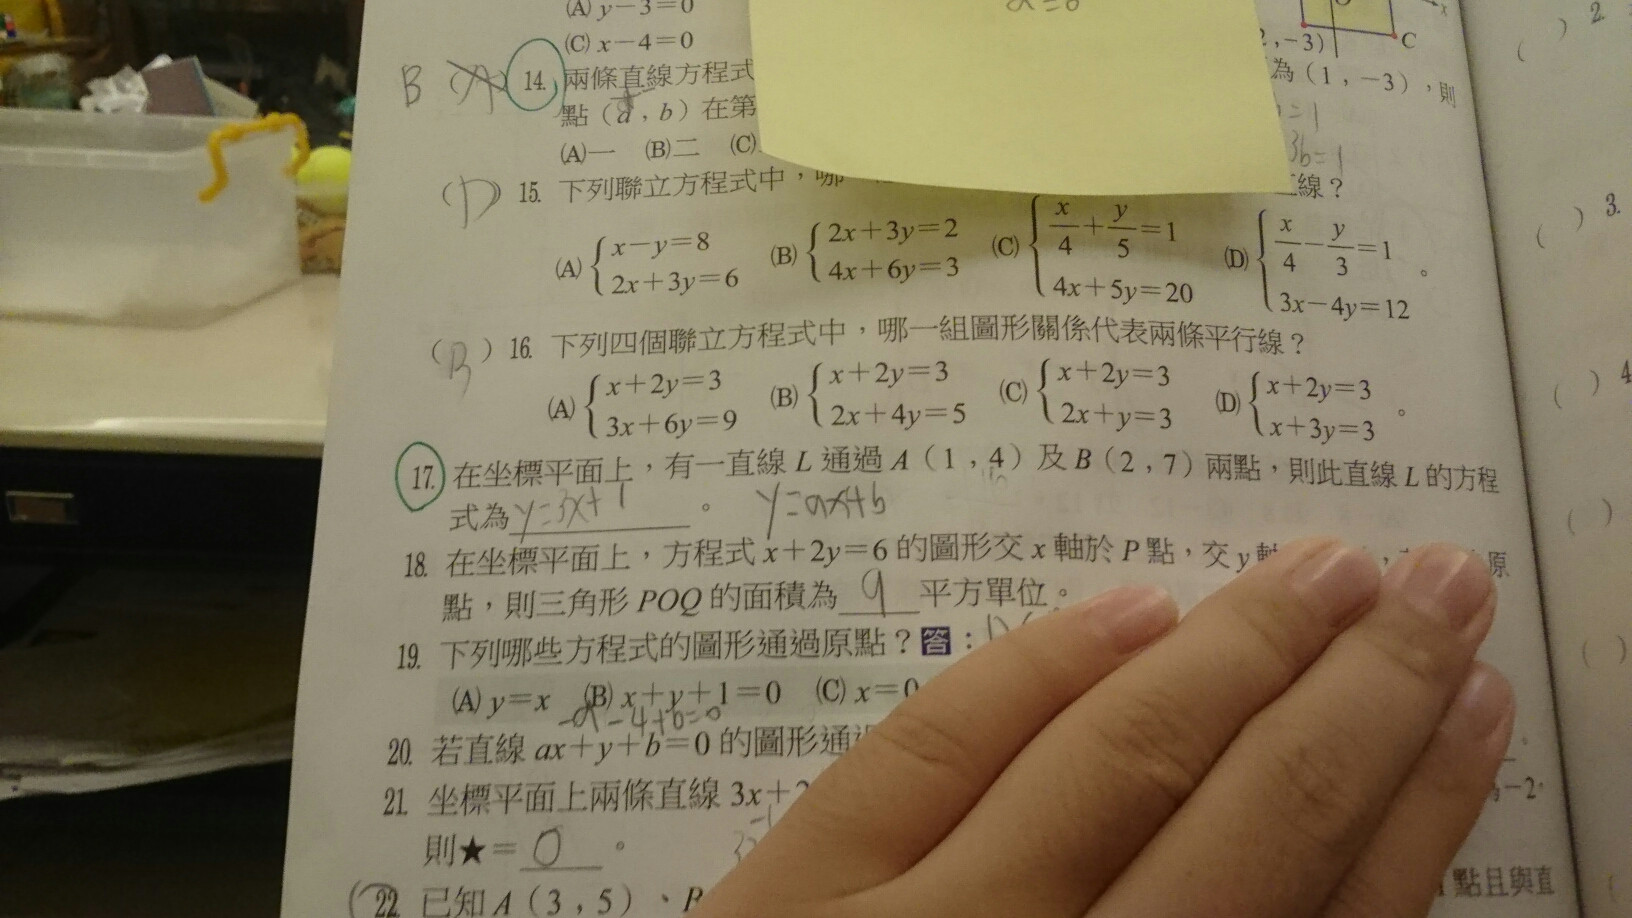 (A) y－3＝0
(C) x－4＝0
2,－3)
C
x
B (A) 14. 兩條直線方程式
為（1，－3），則
點（a，b）在第
(A)一 (B)二 (C)
3b=1
(D) 15. 下列聯立方程式中，哪
線？
(A) { x－y＝8 2x＋3y＝6 (B) { 2x＋3y＝2 4x＋6y＝3 (C) { x/4＋y/5＝1 4x＋5y＝20 (D) { x/4－y/3＝1 3x－4y＝12 。
(B) 16. 下列四個聯立方程式中，哪一組圖形關係代表兩條平行線？
(A) { x＋2y＝3 3x＋6y＝9 (B) { x＋2y＝3 2x＋4y＝5 (C) { x＋2y＝3 2x＋y＝3 (D) { x＋2y＝3 x＋3y＝3 。
17. 在坐標平面上，有一直線 L 通過 A（1，4）及 B（2，7）兩點，則此直線 L 的方程
式為 y=3x+1 。 y=ax+b
18. 在坐標平面上，方程式 x＋2y＝6 的圖形交 x 軸於 P 點，交 y 軸
原
點，則三角形 POQ 的面積為 9 平方單位。
19. 下列哪些方程式的圖形通過原點？答：
(A) y＝x (B) x＋y＋1＝0 (C) x＝0
-a-4+b=0
20. 若直線 ax＋y＋b＝0 的圖形通過
21. 坐標平面上兩條直線 3x＋2
－2，
則★＝ 0 。
22. 已知 A（3，5）、B
點且與直
2.
( )
( ) 3.
( ) 4
( )
( )